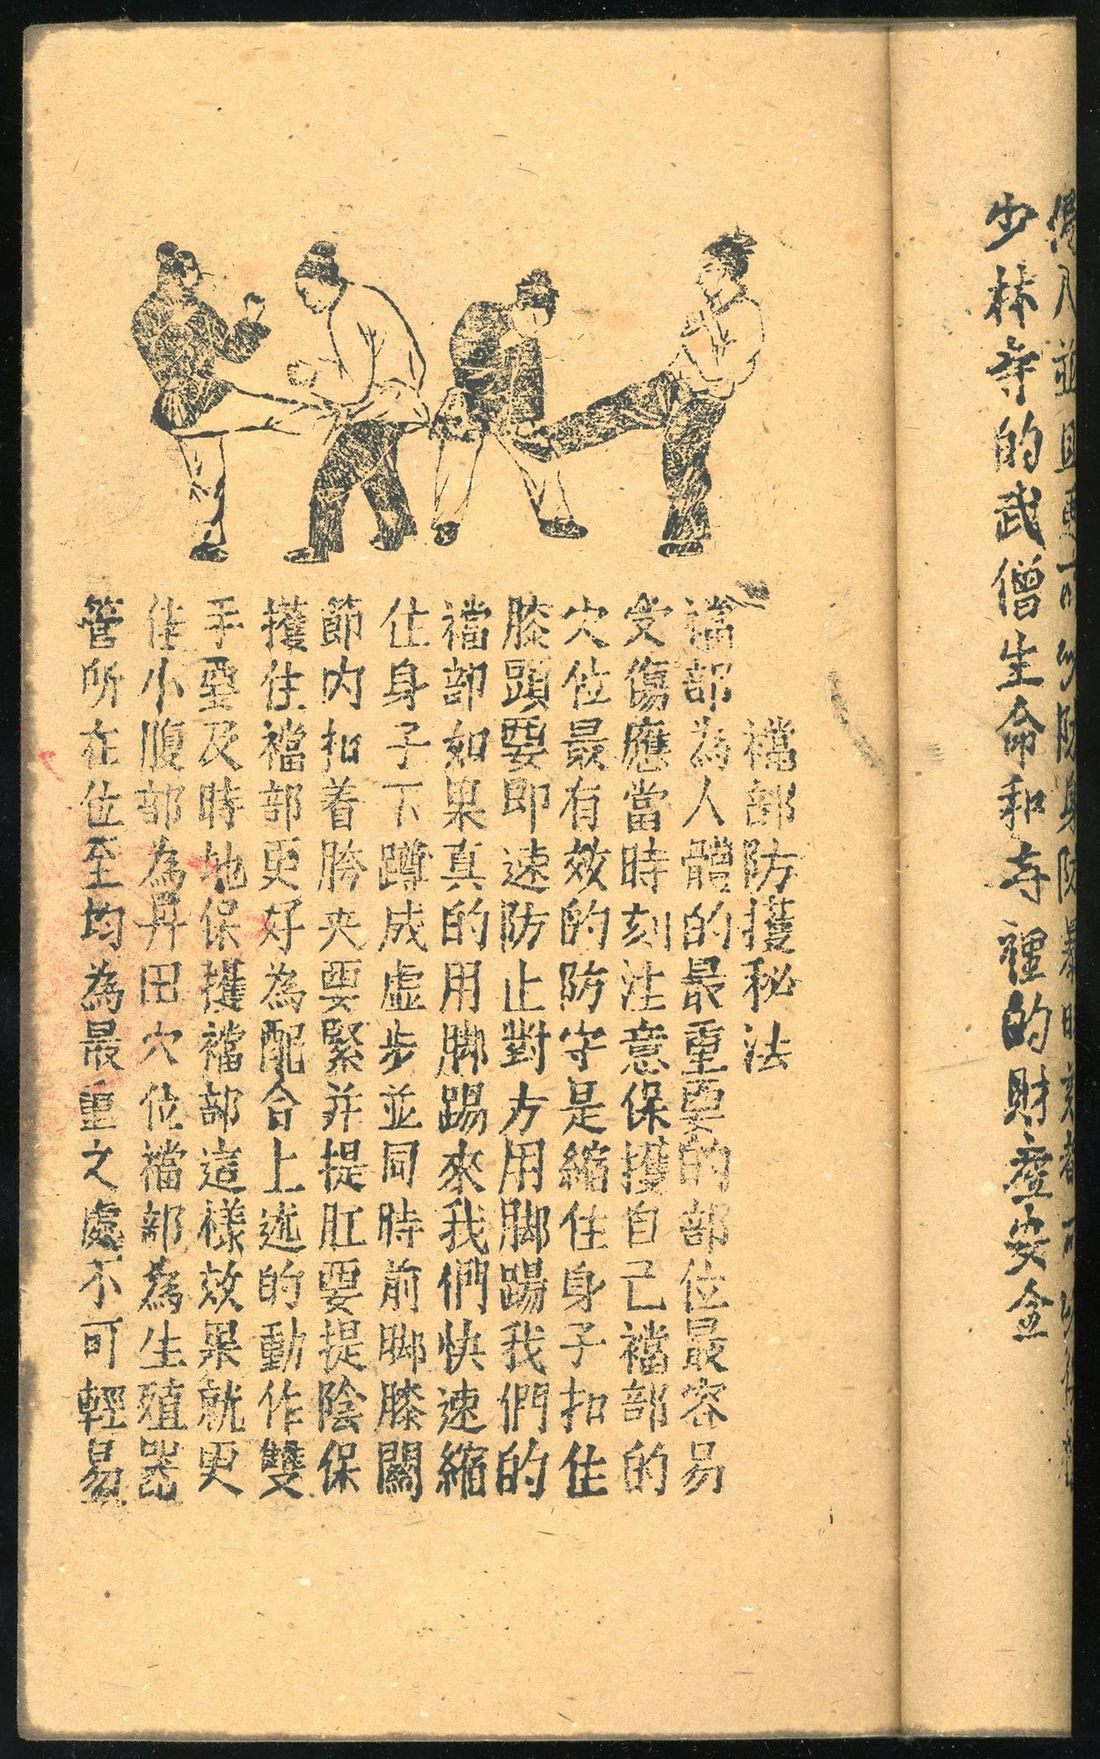 少林寺的武僧生命和寺裡的財產安全
襠部防擭秘法
襠部為人體的最重要的部位最容易
受傷應當時刻注意保擭自己襠部的
穴位最有效的防守是縮住身子扣住
膝頭要即速防止對方用脚踢我們的
襠部如果真的用脚踢來我們快速縮
住身子下蹲成虛步並同時前脚膝關
節内扣着胯夾要緊并提肛要提陰保
擭住襠部更好為配合上述的動作雙
手要及時地保擭襠部這樣效果就更
佳小腹部為丹田穴位襠部為生殖器
管所在位至均為最重之處不可輕易